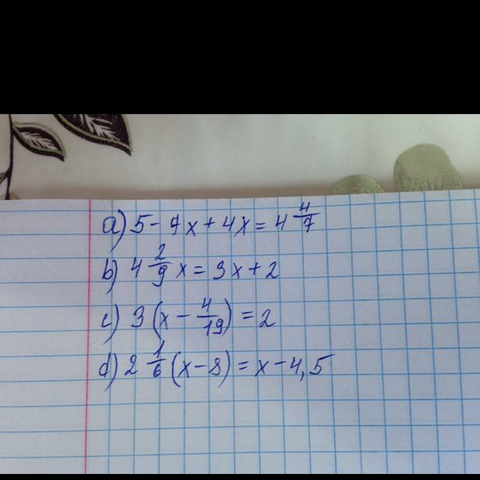 a) 5 - 7x + 4x = 4 4/7
b) 4 2/9 x = 3x + 2
c) 3 (x - 4/19) = 2
d) 2 1/6 (x - 8) = x - 4,5